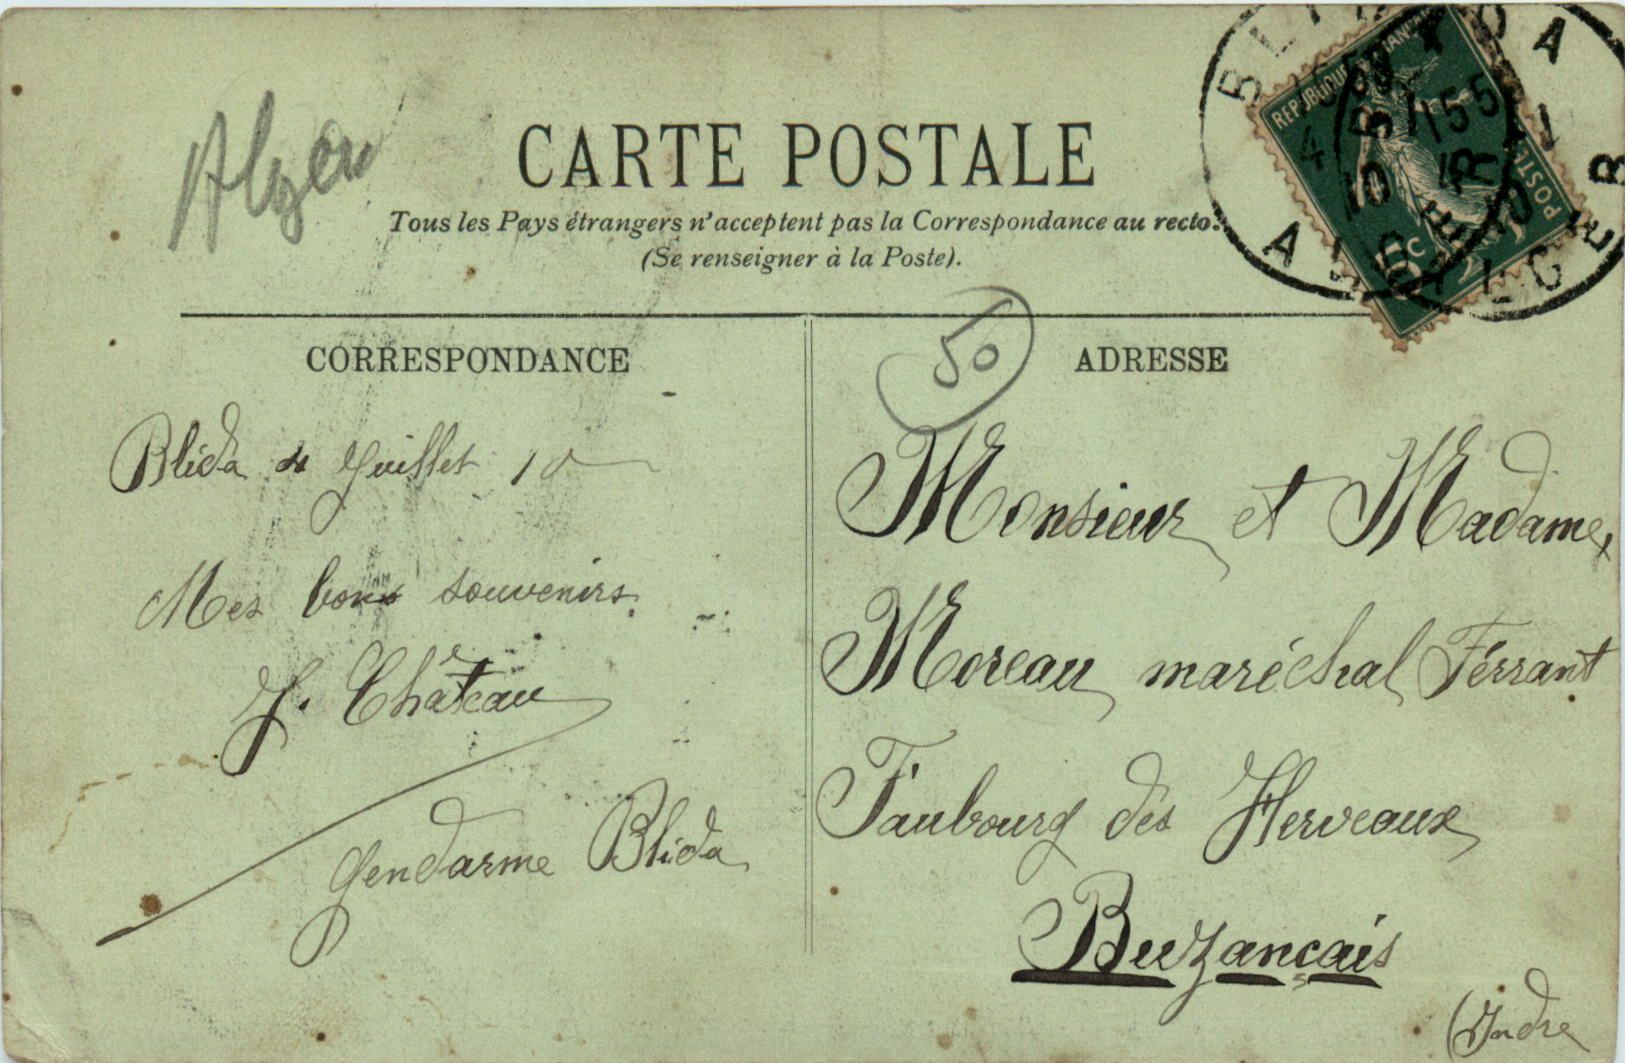 Alger
CARTE POSTALE
Tous les Pays étrangers n'acceptent pas la Correspondance au recto.
(Se renseigner à la Poste).
REPUBLIQUE FRANÇAISE
POSTES
5c
BLIDA
ALGER
CORRESPONDANCE
Blida 4 Juillet 10
Mes bons souvenirs.
J. Château
gendarme Blida
50
ADRESSE
Monsieur et Madame,
Moreau maréchal Férrant
Faubourg des Herveaux
Buzançais
(Indre